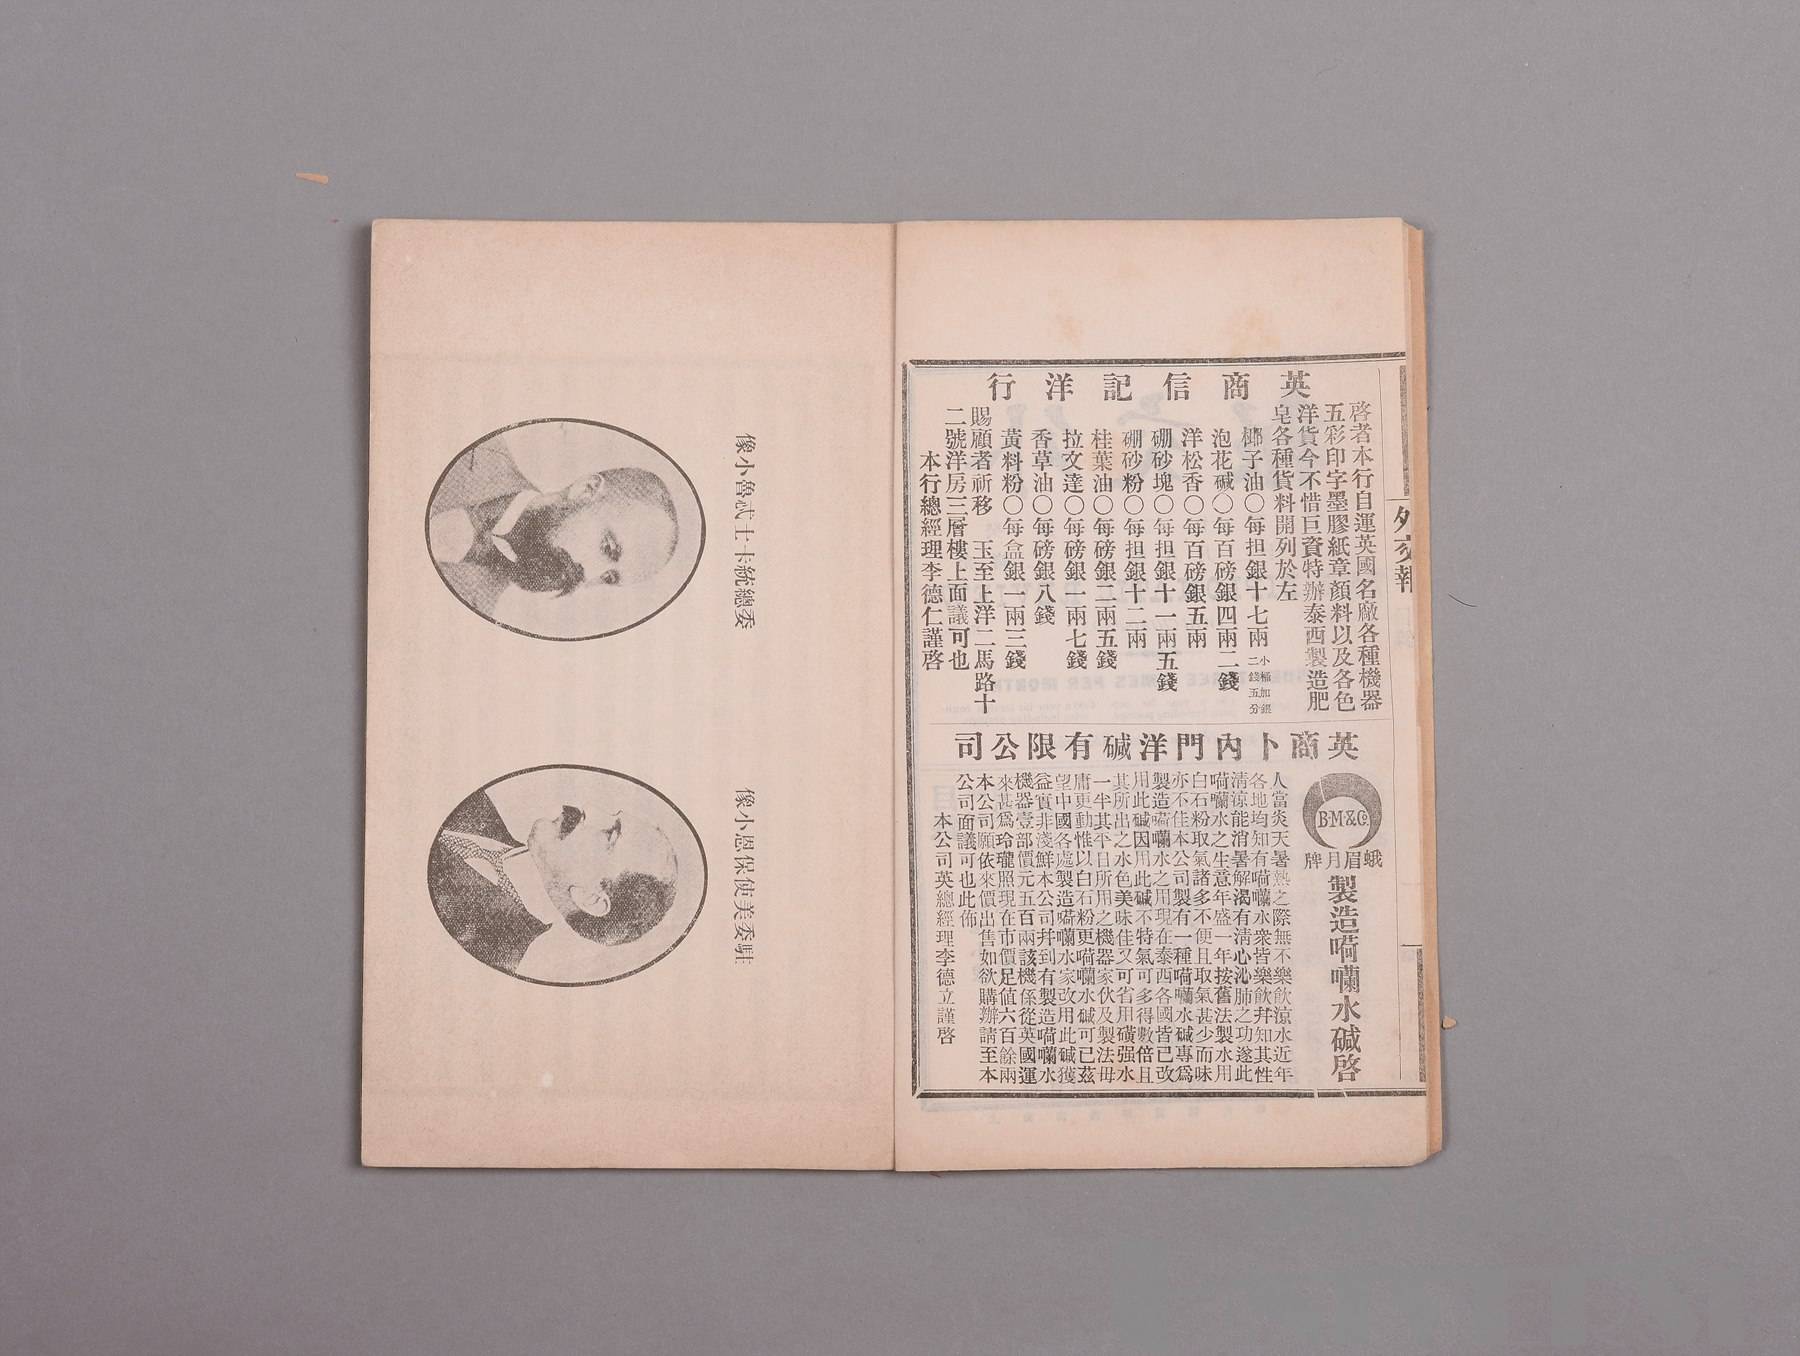 外交報
英商信記洋行
啓者本行自運英國名廠各種機器
五彩印字墨膠紙章顏料以及各色
洋貨今不惜巨資特辦泰西製造肥
皂各種貨料開列於左
椰子油〇每担銀十七兩 小桶加銀二錢五分
泡花碱〇每百磅銀四兩二錢
洋松香〇每百磅銀五兩
硼砂塊〇每担銀十一兩五錢
硼砂粉〇每担銀十二兩
桂葉油〇每磅銀二兩五錢
拉文達〇每磅銀一兩七錢
香草油〇每磅銀八錢
黃料粉〇每盒銀一兩三錢
賜顧者祈移 玉至上洋二馬路十
二號洋房三層樓上面議可也
本行總經理李德仁謹啓
英商卜內門洋碱有限公司
B.M.&C.
蛾眉月牌
製造嗬囒水碱啓
人當炎天暑熱之際無不樂飲涼水近年
各地均知有嗬囒水衆皆樂飲幷知其性
清涼能消暑解渴有清心沁肺之功遂此
嗬囒水之生意年盛一年按舊法製水用
白石粉取氣諸多不便且取氣甚少而味
亦不佳本公司製有一種嗬囒水碱專爲
製造嗬囒水之用現在泰西各國皆已改
用此碱因用此碱不特氣可多得數倍且
其所出之水色美味佳又可省用磺强水
一半其平日所用之機器家伙及製法毋
庸更動惟以白石粉更嗬囒水碱可已茲
望中國各處製造嗬囒水家改用此碱獲
益實非淺鮮本公司幷到有製造嗬囒水
機器壹部價元五百兩該機係從英國運
來甚爲玲瓏照現在市價足值六百餘兩
本公司願依來價出售如欲購辦請至本
公司面議可也此佈
本公司英總經理李德立謹啓
委總統卡士忒魯小像
駐委美使保恩小像